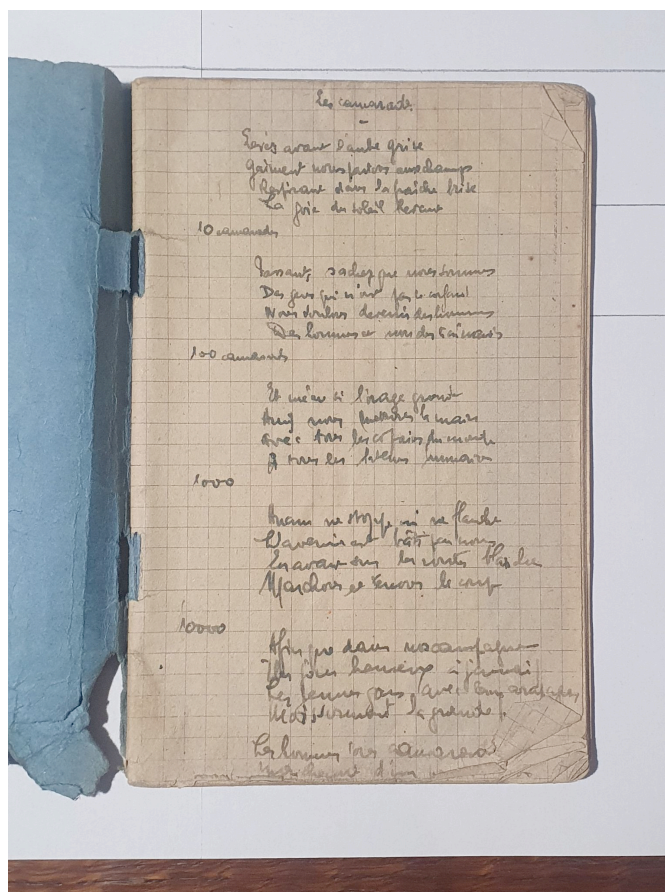 Les camarades
Levés avant l'aube grise
Gaiment nous partons aux champs
Respirant dans la fraîche brise
La joie du soleil levant
10 camarades
Passant, sachez que nous sommes
Des gens qui n'ont pas
Nous voulons devenir des hommes
Des hommes et non des
100 camarades
Et même si l'orage gronde
nous la main
avec tous les copains du monde
A tous les
1000
Aucun ne stoppe ni ne flanche
L'avenir est bâti par nous
En avant sur les routes blanches
Marchons et tenons le coup
10000
Afin que dans nos campagnes
Les jours heureux à jamais
Les jeunes gars avec leurs
la grande
Les hommes nos camarades
d'un